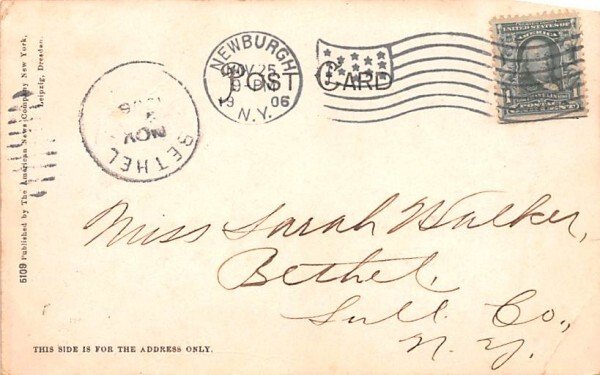 NEWBURGH
NOV 25
9 PM
19 06
N.Y.
POST CARD
UNITED STATES OF
AMERICA
1
BETHEL
NOV
Miss Sarah Walker,
Bethel,
Sull. Co.,
N. Y.
5109 Published by The American News Company New York,
Leipzig, Dresden.
THIS SIDE IS FOR THE ADDRESS ONLY.